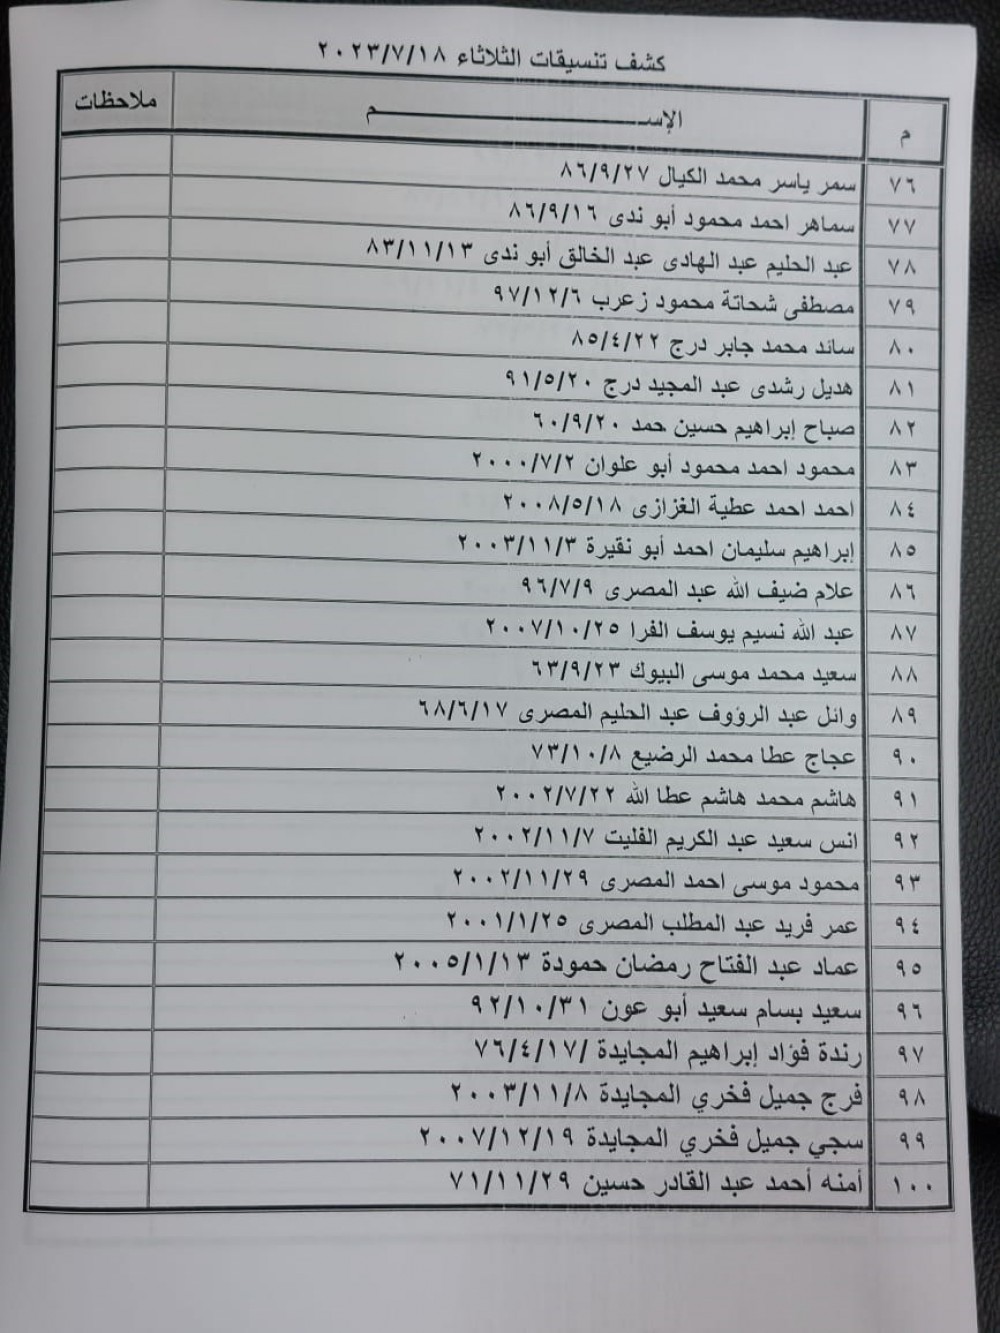 كشف تنسيقات الثلاثاء ٢٠٢٣/٧/١٨
م الإســــــــم ملاحظات
٧٦ سمر ياسر محمد الكيال ٨٦/٩/٢٧
٧٧ سماهر احمد محمود أبو ندى ٨٦/٩/١٦
٧٨ عبد الحليم عبد الهادى عبد الخالق أبو ندى ٨٣/١١/١٣
٧٩ مصطفى شحاتة محمود زعرب ٩٧/١٢/٦
٨٠ سائد محمد جابر درج ٨٥/٤/٢٢
٨١ هديل رشدى عبد المجيد درج ٩١/٥/٢٠
٨٢ صباح إبراهيم حسين حمد ٦٠/٩/٢٠
٨٣ محمود احمد محمود أبو علوان ٢٠٠٠/٧/٢
٨٤ احمد احمد عطية الغزازى ٢٠٠٨/٥/١٨
٨٥ إبراهيم سليمان احمد أبو نقيرة ٢٠٠٣/١١/٣
٨٦ علام ضيف الله عبد المصرى ٩٦/٧/٩
٨٧ عبد الله نسيم يوسف الفرا ٢٠٠٧/١٠/٢٥
٨٨ سعيد محمد موسى البيوك ٦٣/٩/٢٣
٨٩ وائل عبد الرؤوف عبد الحليم المصرى ٦٨/٦/١٧
٩٠ عجاج عطا محمد الرضيع ٧٣/١٠/٨
٩١ هاشم محمد هاشم عطا الله ٢٠٠٢/٧/٢٢
٩٢ انس سعيد عبد الكريم الفليت ٢٠٠٢/١١/٧
٩٣ محمود موسى احمد المصرى ٢٠٠٢/١١/٢٩
٩٤ عمر فريد عبد المطلب المصرى ٢٠٠١/١/٢٥
٩٥ عماد عبد الفتاح رمضان حمودة ٢٠٠٥/١/١٣
٩٦ سعيد بسام سعيد أبو عون ٩٢/١٠/٣١
٩٧ رندة فؤاد إبراهيم المجايدة /٧٦/٤/١٧
٩٨ فرج جميل فخري المجايدة ٢٠٠٣/١١/٨
٩٩ سجي جميل فخري المجايدة ٢٠٠٧/١٢/١٩
١٠٠ أمنه أحمد عبد القادر حسين ٧١/١١/٢٩